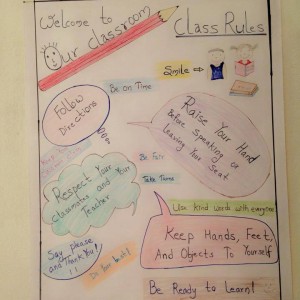 Welcome to
Our classroom
Class Rules
Smile
Be on Time
Follow
Directions
Raise Your Hand
Before Speaking or
Leaving Your Seat
Be Fair
Take Turns
Respect Your
Classmates and Your
Teacher
Use kind words with everyone
Say please
and Thank You!
Keep Hands, Feet,
And Objects To Yourself
Be Ready to Learn!